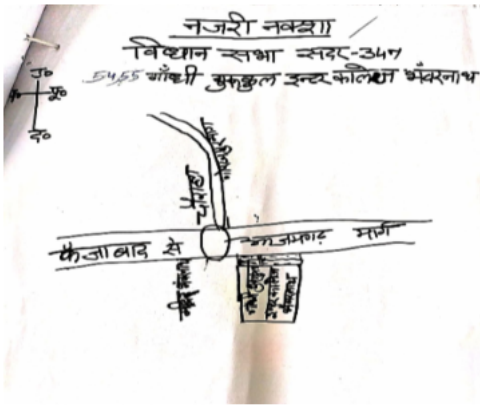 नजरी नक्शा
विधान सभा सदर-347
54,55 गाँधी गुरुकुल इन्टर कालेज भँवरनाथ
उ०
पू०
द०
चौराहा
फैजाबाद से आजमगढ़ मार्ग
गाँधी गुरुकुल
इन्टर कालेज
भँवरनाथ